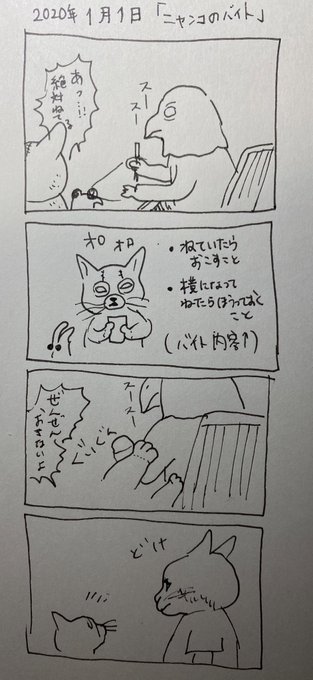 2020年1月1日「ニャンコのバイト」
あっ…!!
絶対ねてる
スースー
オロオロ
・ねていたら
おこすこと
・横になって
ねたらほうっておく
こと
(バイト内容↑)
スースー
ぜんぜん
おきないよ
どけ